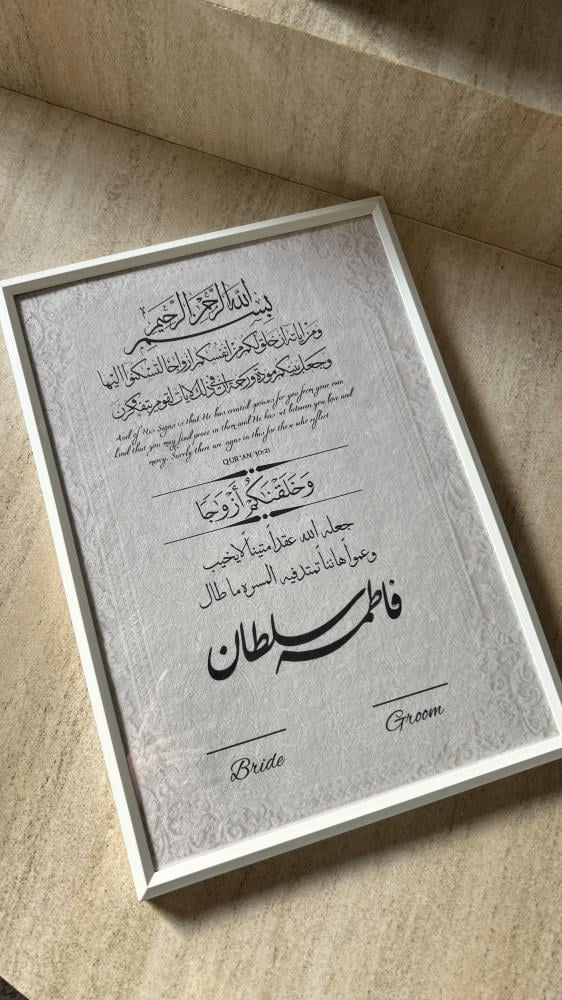 بسم الله الرحمن الرحيم
ومن اياته ان خلق لكم من انفسكم ازواجا لتسكنوا اليها
وجعل بينكم مودة ورحمة ان في ذلك لايات لقوم يتفكرون
And of His Signs is that He has created spouses for you from your own
kind that you may find peace in them and He has set between you love and
mercy. Surely there are signs in this for those who reflect
QUR'AN 30:21
وَخَلَقْنَٰكُمْ أَزْوَٰجًا
جعله الله عقداً متيناً لايخيب
وعمراً هانئاً تمتد فيه المسره ما طال
فاطمه سلطان
Groom
Bride